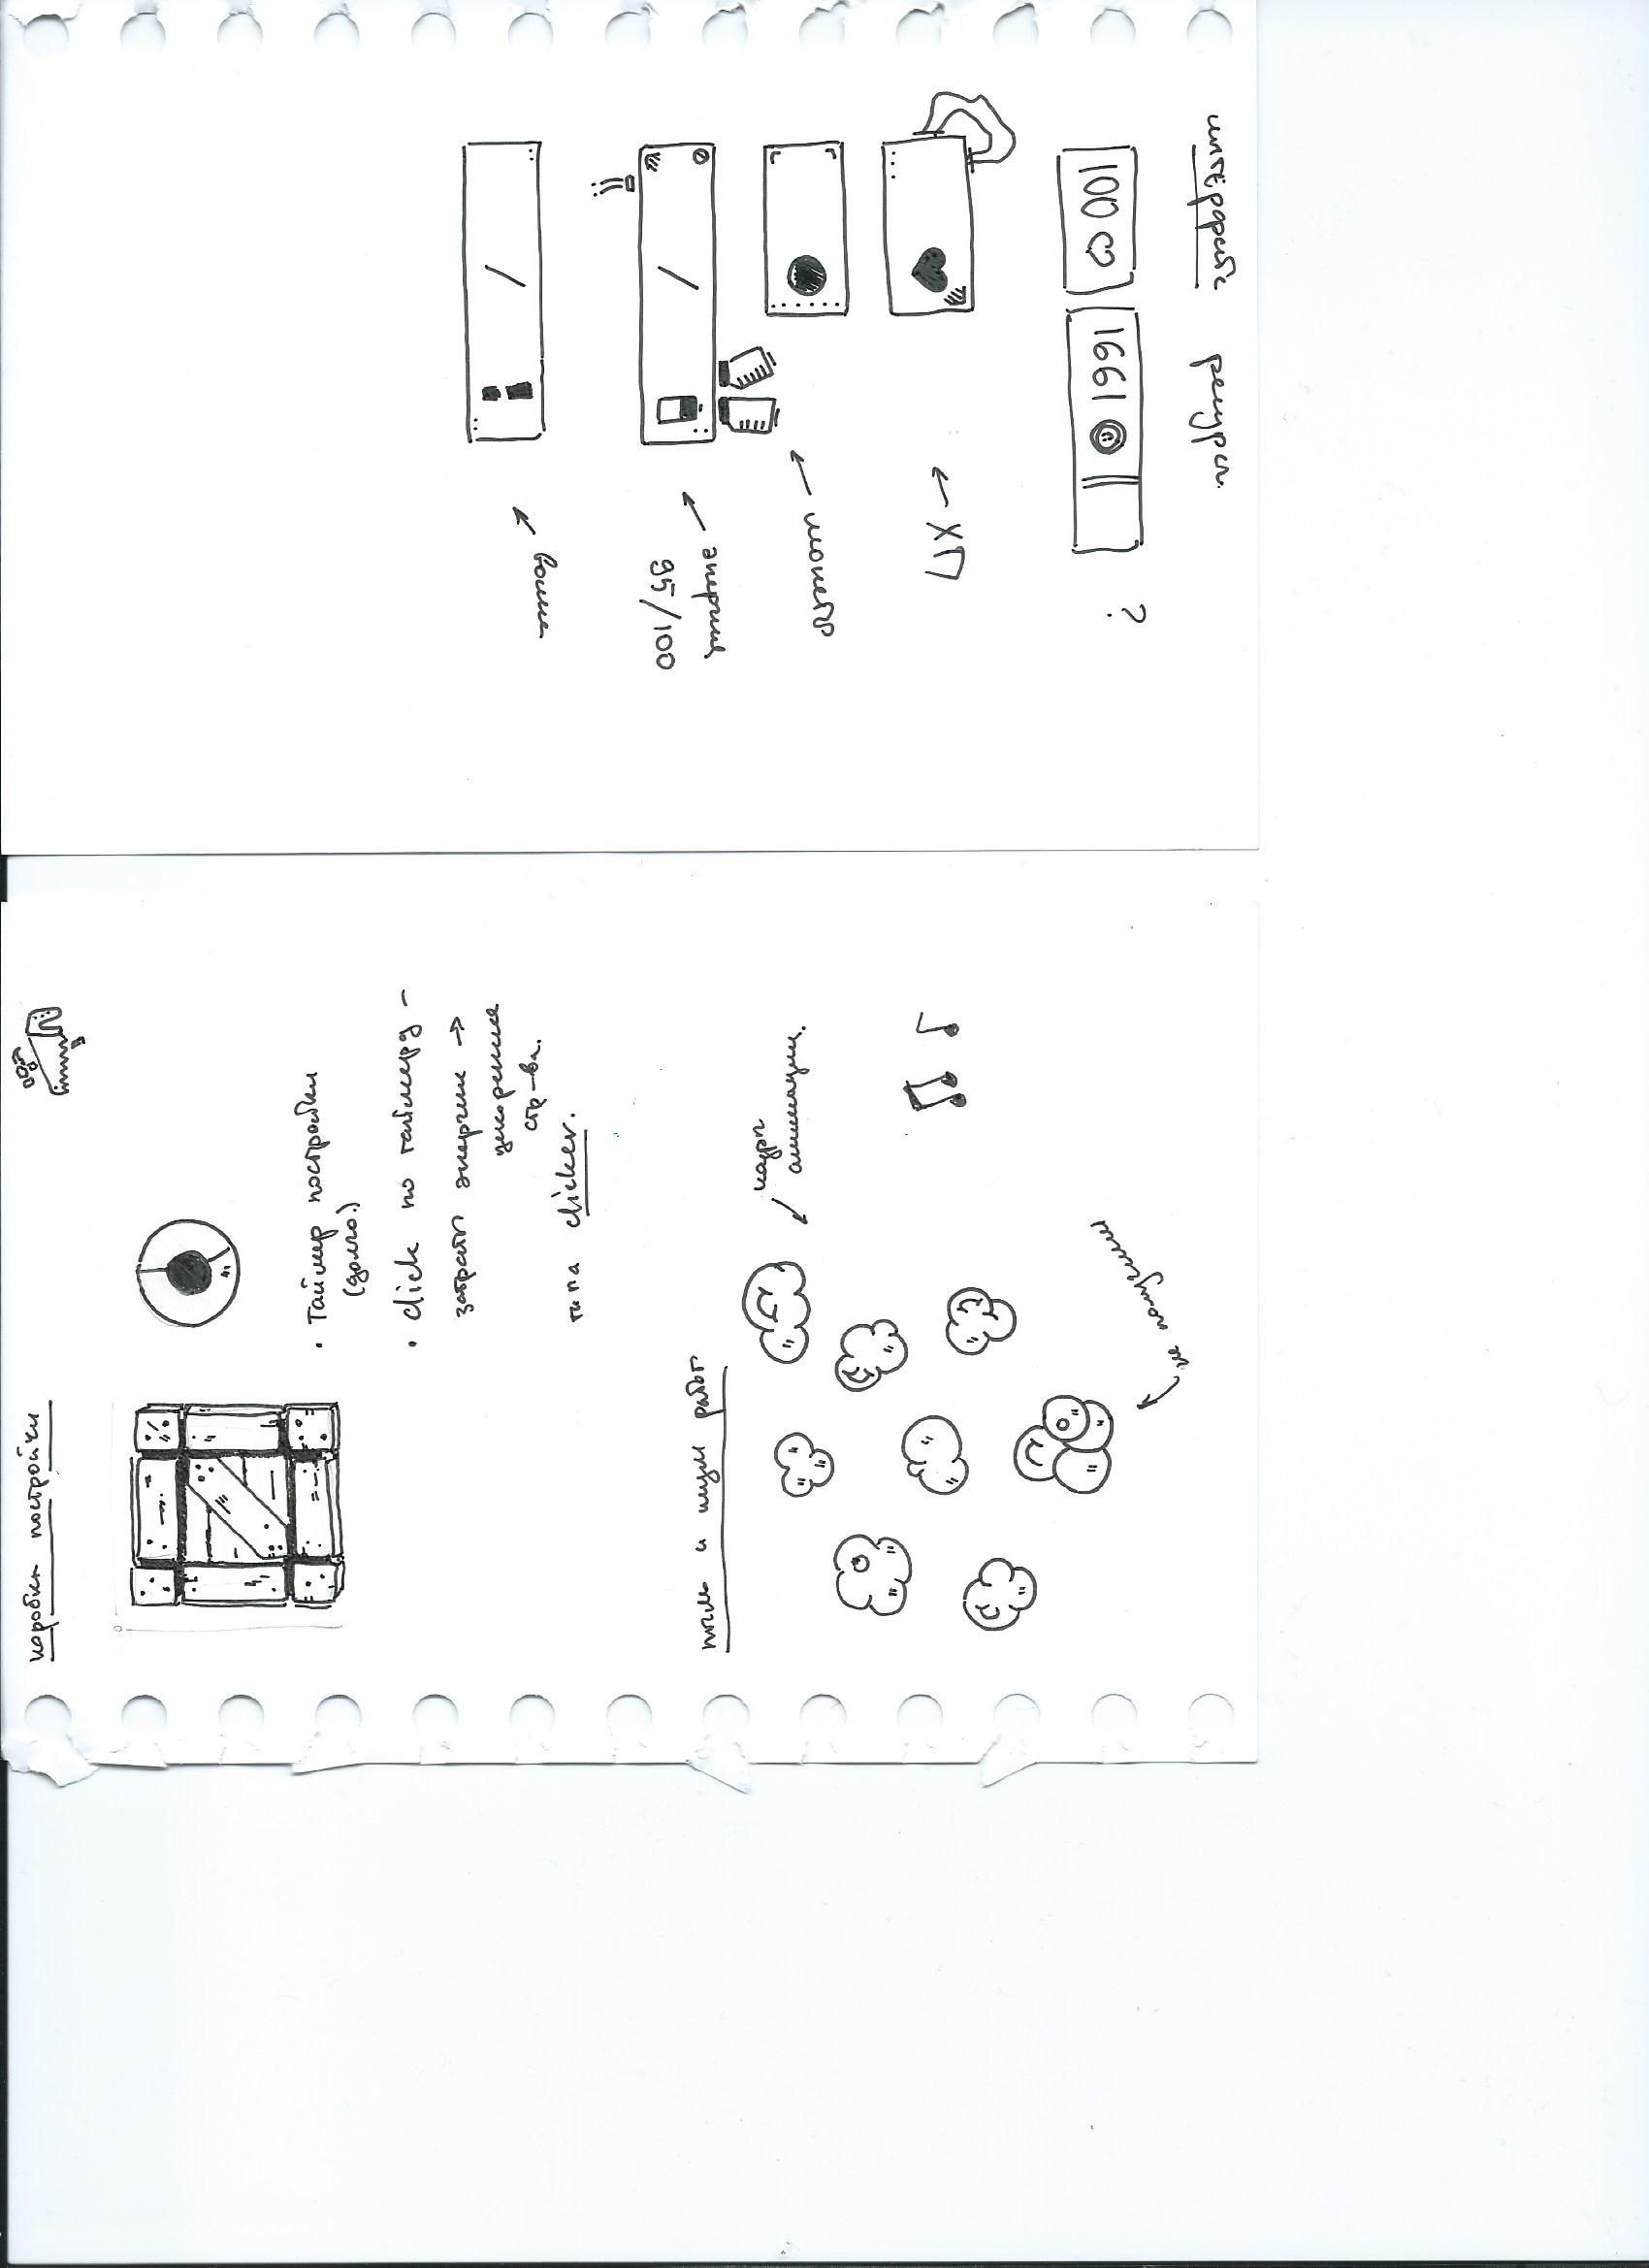 интерфейс ресурсы.
100
1661
?
← ХП
← монеты
← энергия
95/100
←
коробка постройки
• Таймер постройки
(долго.)
• click по таймеру –
затраты энергии →
ускорение
стр–ва.
типа clicker.
пыль и шум работ
кадры
анимации.
не